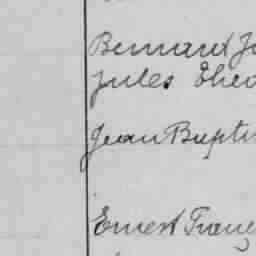 Bernard J
Jules Theo
Jean Baptis
Ernest Franç